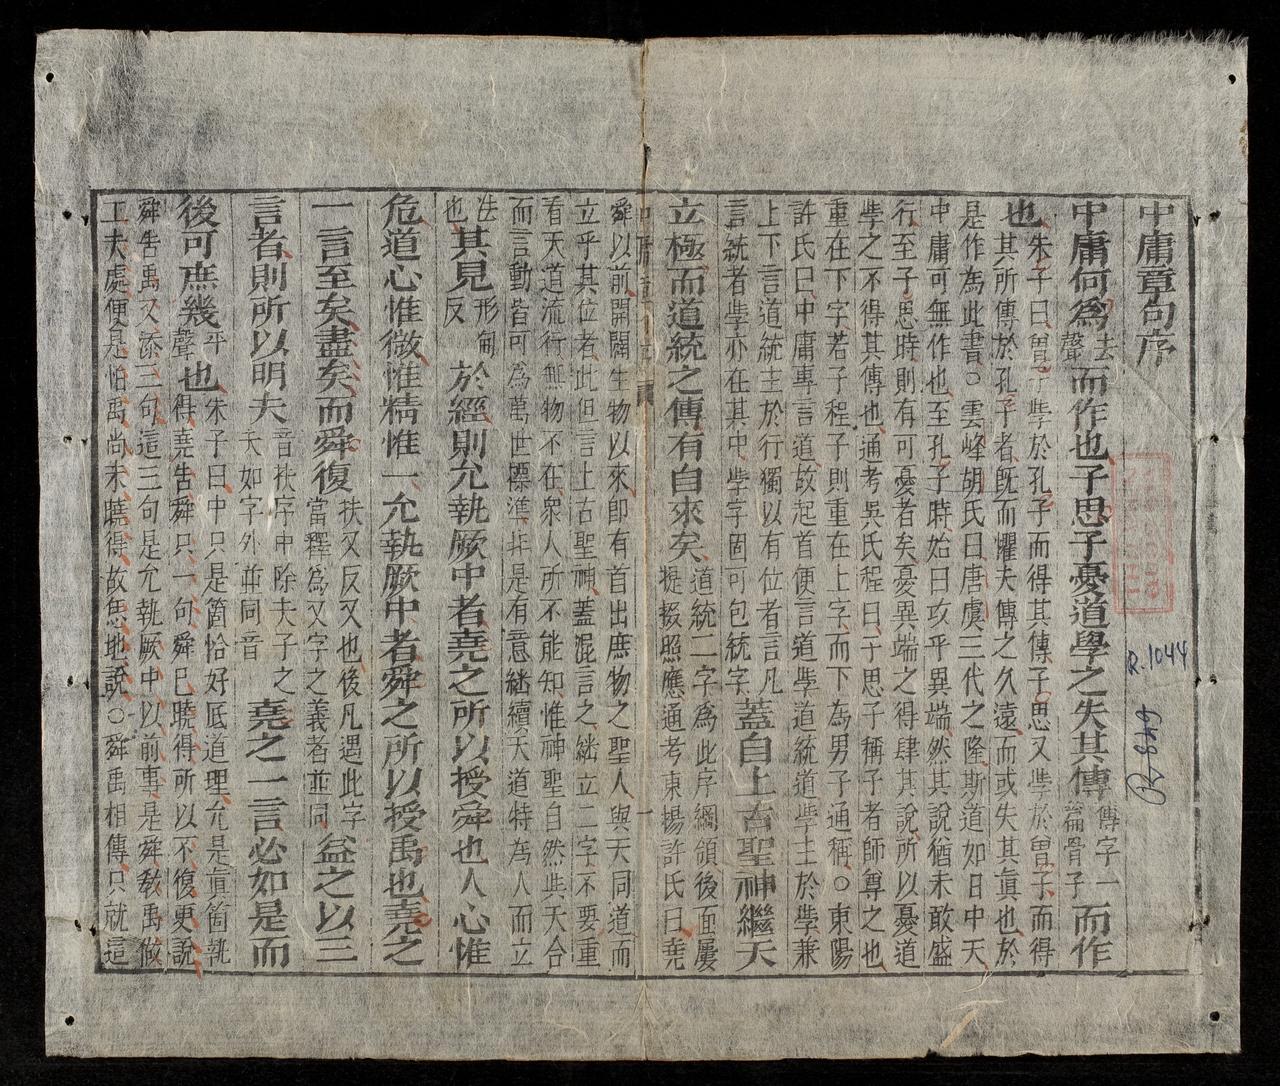 中庸章句序
中庸何爲去聲而作也子思子憂道學之失其傳傳字一篇骨子而作
也朱子曰曾子學於孔子而得其傳子思又學於曾子而得
其所傳於孔子者旣而懼夫傳之久遠而或失其眞也於
是作為此書○雲峰胡氏曰唐虞三代之隆斯道如日中天
中庸可無作也至孔子時始曰攻乎異端然其說猶未敢盛
行至子思時則有可憂者矣憂異端之得肆其說所以憂道
學之不得其傳也通考吳氏程曰子思子稱子者師尊之也
重在下字若子程子則重在上字而下為男子通稱○東陽
許氏曰中庸專言道故起首便言道學道統道學主於學兼
上下言道統主於行獨以有位者言凡
言統者學亦在其中學字固可包統字蓋自上古聖神繼天
立極而道統之傳有自來矣道統二字為此序綱領後面屢
提掇照應通考東揚許氏曰堯
舜以前開闢生物以來即有首出庶物之聖人與天同道而
立乎其位者此但言上古聖神蓋混言之継立二字不要重
看天道流行無物不在衆人所不能知惟神聖自然與天合
而言動皆可為萬世標準非是有意継續天道特為人而立
法也其見形甸反於經則允執厥中者堯之所以授舜也人心惟
危道心惟微惟精惟一允執厥中者舜之所以授禹也堯之
一言至矣盡矣而舜復扶又反又也後凡遇此字當釋為又字之義者並同益之以三
言者則所以明夫音扶序中除夫子之夫如字外並同音堯之一言必如是而
後可庶幾平聲也朱子曰中只是箇恰好底道理允是眞箇執
得堯告舜只一句舜已曉得所以不復更說
舜告禹又添三句這三句是允執厥中以前事是舜敎禹做
工夫處便是怕禹尚未曉得故恁地說○舜禹相傳只就這
R.1044